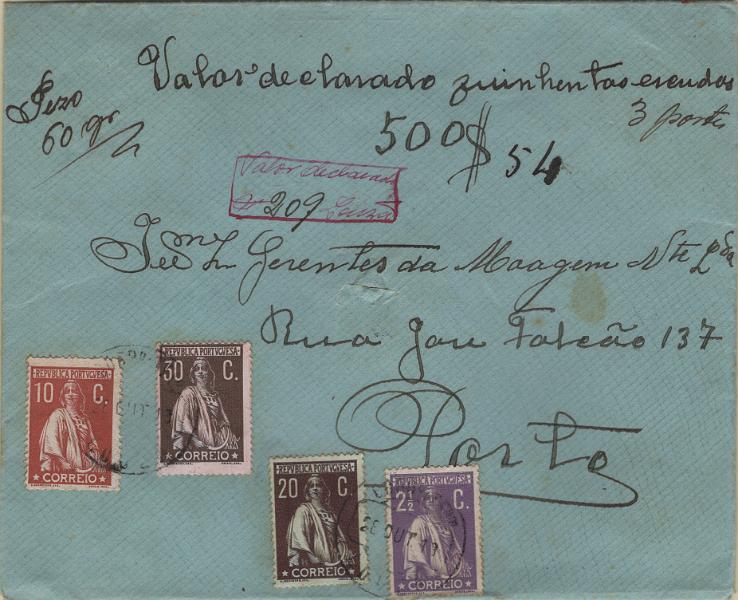 Valor declarado quinhentos escudos
Pezo
60 gr
3 portes
500$
54
Valor declarado
Nº 209 Louzã
Gerentes da Moagem Nte Lda
Rua José Falcão 137
Porto
REPUBLICA PORTUGUESA
10 C.
CORREIO
REPUBLICA PORTUGUESA
30 C.
CORREIO
REPUBLICA PORTUGUESA
20 C.
CORREIO
REPUBLICA PORTUGUESA
2½ C.
CORREIO
OUT
OUT